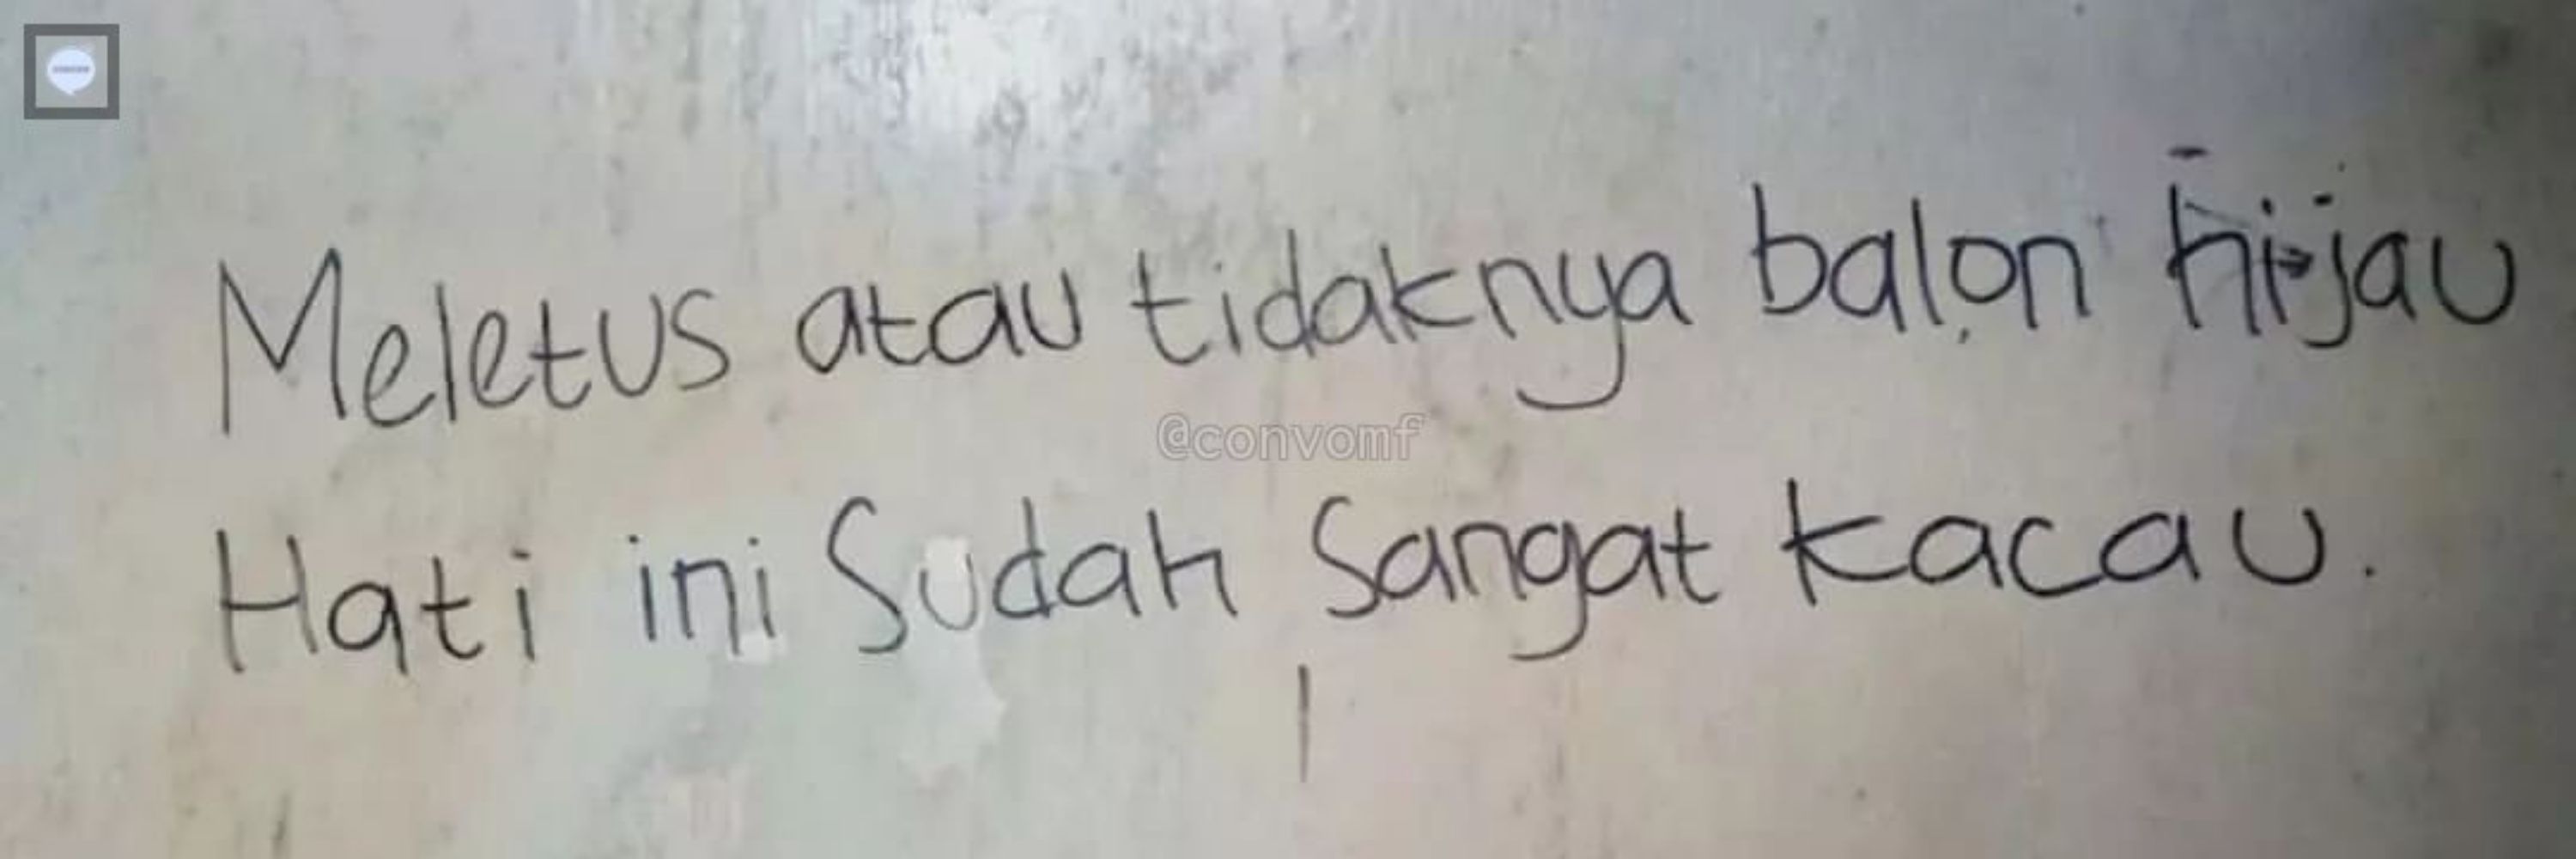 Meletus atau tidaknya balon hijau
@convomf
Hati ini Sudah Sangat kacau.